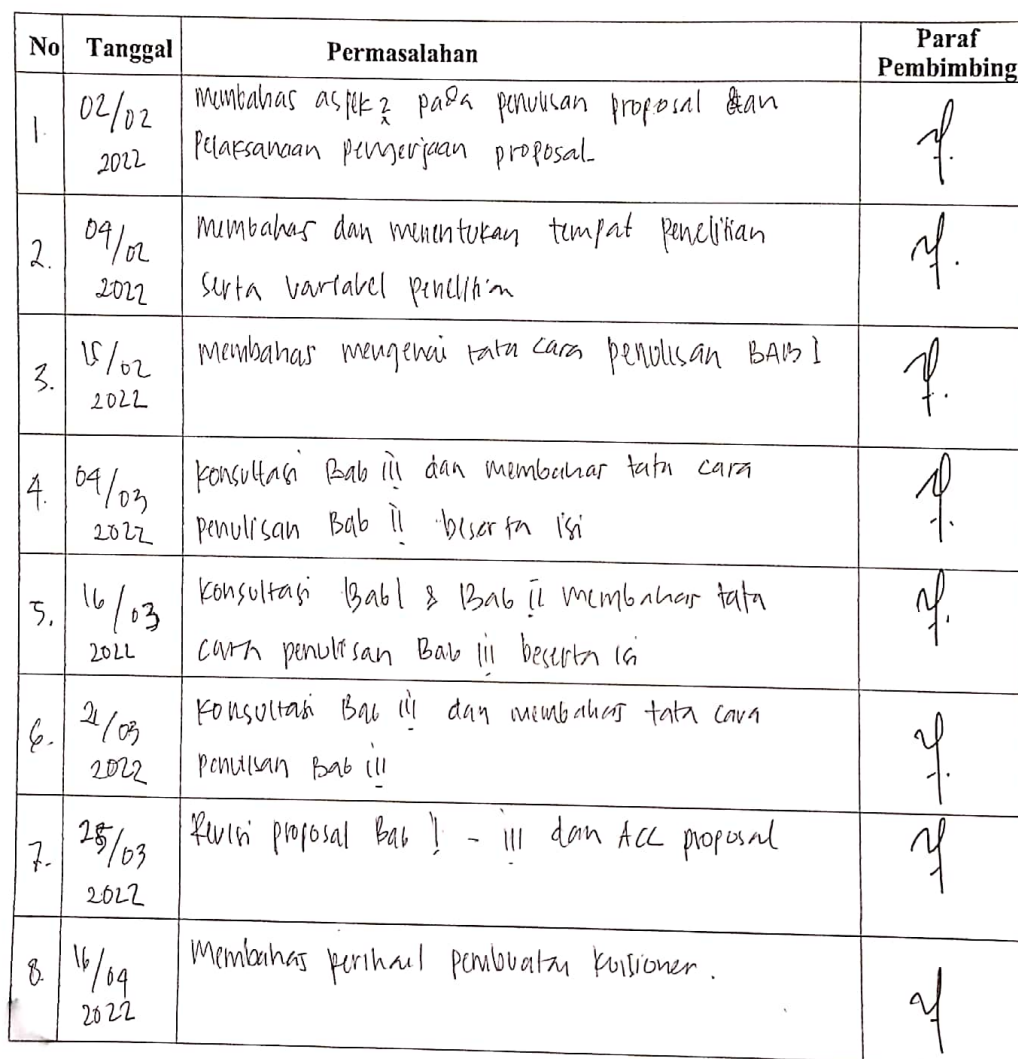 No Tanggal Permasalahan Paraf Pembimbing
1. 02/02 2022 membahas aspek2 pada penulisan proposal dan
Pelaksanaan pengerjaan proposal
2. 04/02 2022 membahas dan menentukan tempat penelitian
serta variabel penelitian
3. 15/02 2022 membahas mengenai tata cara penulisan BAB I
4. 04/03 2022 konsultasi Bab iii dan membahas tata cara
penulisan Bab ii beserta isi
5. 16/03 2022 konsultasi Bab I & Bab ii membahas tata
cara penulisan Bab iii beserta isi
6. 21/03 2022 konsultasi Bab iii dan membahas tata cara
penulisan Bab iii
7. /03 2022 Revisi proposal Bab I - iii dan ACC proposal
8. 16/04 2022 Membahas perihal pembuatan kuisioner.